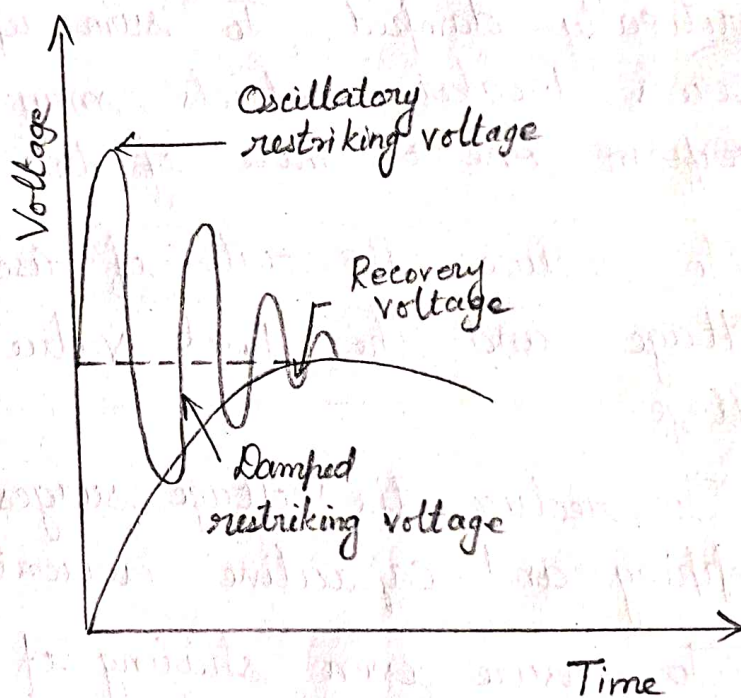 Oscillatory
restriking voltage
Voltage
Recovery
voltage
Damped
restriking voltage
Time